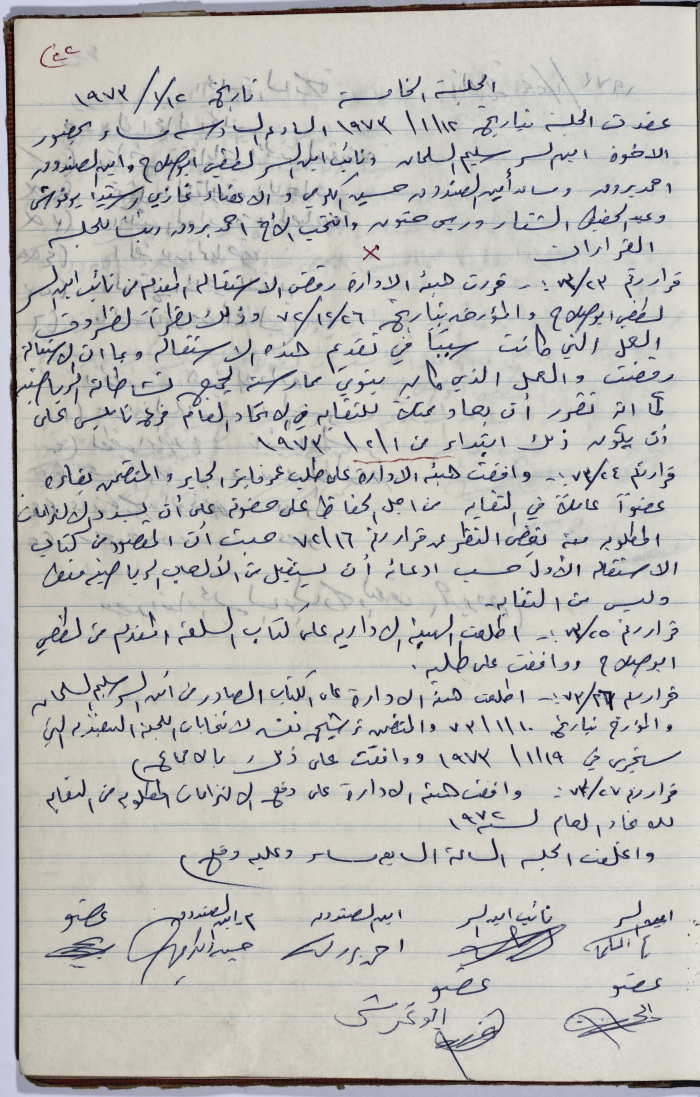 الجلسة الخامسة تاريخ ١٩٧٣/١/١٢
عقدت الجلسة بتاريخ ١٩٧٣/١/١٢ الساعة السادسة مساء بحضور
الاخوة امين السر سليم السلمان ونائب امين السر لطفي ابو صلاح وامين الصندوق
احمد بدوه ومساعد أمين الصندوق حسين الكوني والاعضاء غازي و ابو غوش
وعبد الحفيظ الشنار وانتخب الأخ احمد بدوه رئيسا للجلسة
القرارات
قرار رقم ٧٣/٢٣ :- قررت هيئة الادارة رفض الاستقالة المقدم من نائب امين السر
لطفي ابو صلاح والمؤرخه بتاريخ ٧٢/١٢/٢٦ وذلك نظراً لظروف
العمل التي كانت سبباً في تقديم هذه الاستقالة وبما ان الاستقالة
رفضت والعمل الذي كان ينوي ممارسته لجميع نشاطاته الرياضية
كما انه تقرر أن يعاد ممثلا للنقابة في الاتحاد العام فرع نابلس على
أن يكون ذلك ابتداء من ١٩٧٣/٢/١
قرار رقم ٧٣/٢٤ :- وافقت هيئة الادارة على طلب عمر فايز الجابر والمتضمن بقاءه
عضواً عاملا في النقابه من اجل الحفاظ على حقوقه على أن يسدد الالتزامات
المطلوبه منه بغض النظر عن قرار رقم ٧٢/١٦ حيث أن المقصود من كتاب
الاستقاله الأول حسب ادعائه أن يستقيل من الألعاب الرياضيه فقط
وليس من النقابه.
قرار رقم ٧٣/٢٥ :- اطلعت الهيئة الاداريه على كتاب السلفة المقدم من لطفي
ابو صلاح ووافقت على طلبه.
قرار رقم ٧٣/٢٦ :- اطلعت هيئة الادارة على الكتاب الصادر من أمين السر سليم السلمان
والمؤرخ بتاريخ ٧٣/١/١٠ والمتضمن ترشيح نفسه لانتخابات اللجنة التنفيذيه التي
ستجري في ١٩٧٣/١/١٩ ووافقت على ذلك بالاجماع
قرار رقم ٧٣/٢٧ :- وافقت هيئة الادارة على دفع الالتزامات المطلوبه من النقابه
للاتحاد العام لسنة ١٩٧٢
واغلقت الجلسه الساعة السابعه مساء وعليه وقع
امين السر نائب امين السر امين الصندوق م. امين الصندوق عضو
احمد بدوه حسين الكوني
عضو عضو
ابو غوش